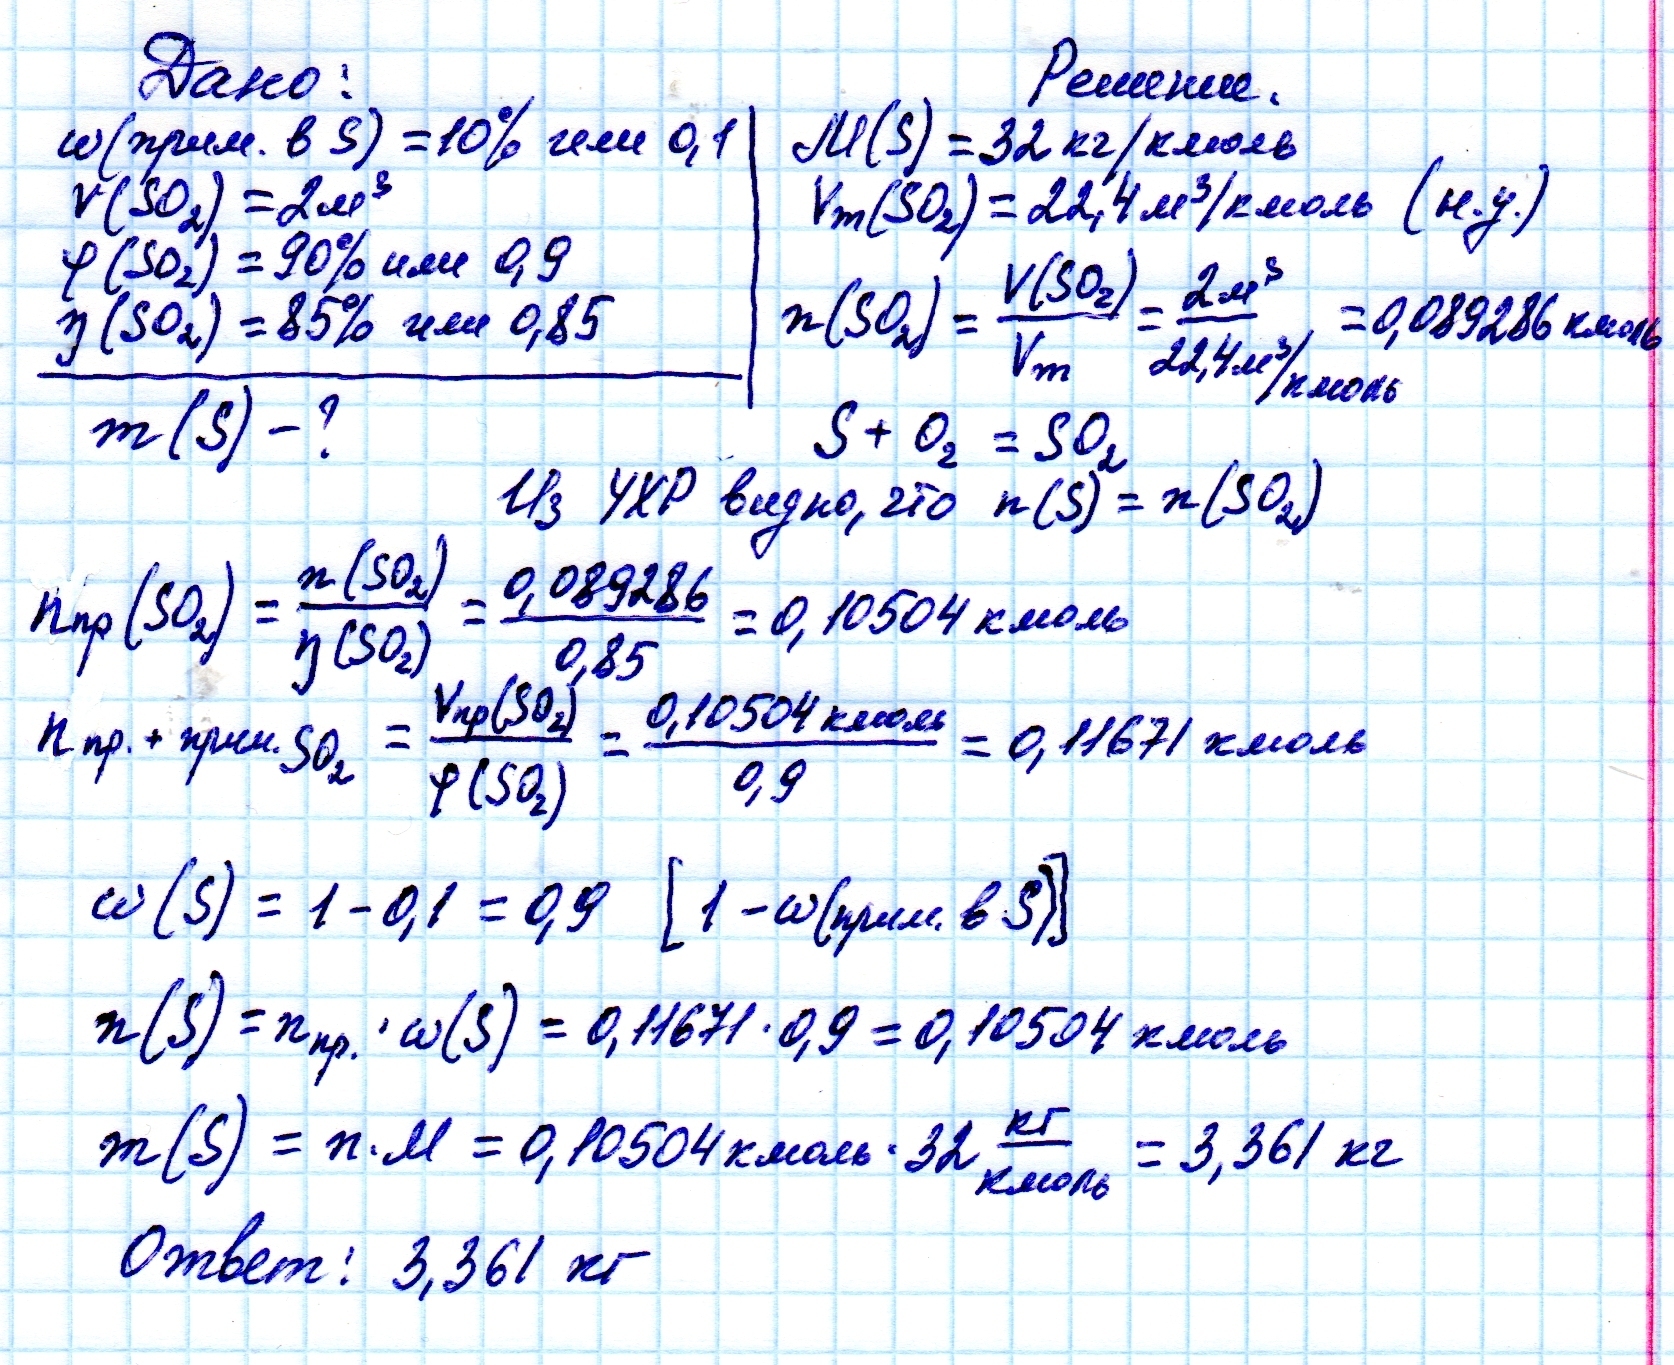 Дано:
ω(прим. в S) = 10% или 0,1
V(SO₂) = 2 м³
φ(SO₂) = 90% или 0,9
η(SO₂) = 85% или 0,85
m(S) – ?
Решение.
M(S) = 32 кг/кмоль
Vm(SO₂) = 22,4 м³/кмоль (н.у.)
n(SO₂) = V(SO₂)/Vm = 2 м³/22,4 м³/кмоль = 0,089286 кмоль
S + O₂ = SO₂
Из УХР видно, что n(S) = n(SO₂)
nпр(SO₂) = n(SO₂)/η(SO₂) = 0,089286/0,85 = 0,10504 кмоль
nпр. + прим. SO₂ = Vпр(SO₂)/φ(SO₂) = 0,10504 кмоль/0,9 = 0,11671 кмоль
ω(S) = 1 – 0,1 = 0,9 [1 – ω(прим. в S)]
n(S) = nпр. · ω(S) = 0,11671 · 0,9 = 0,10504 кмоль
m(S) = n · M = 0,10504 кмоль · 32 кг/кмоль = 3,361 кг
Ответ: 3,361 кг